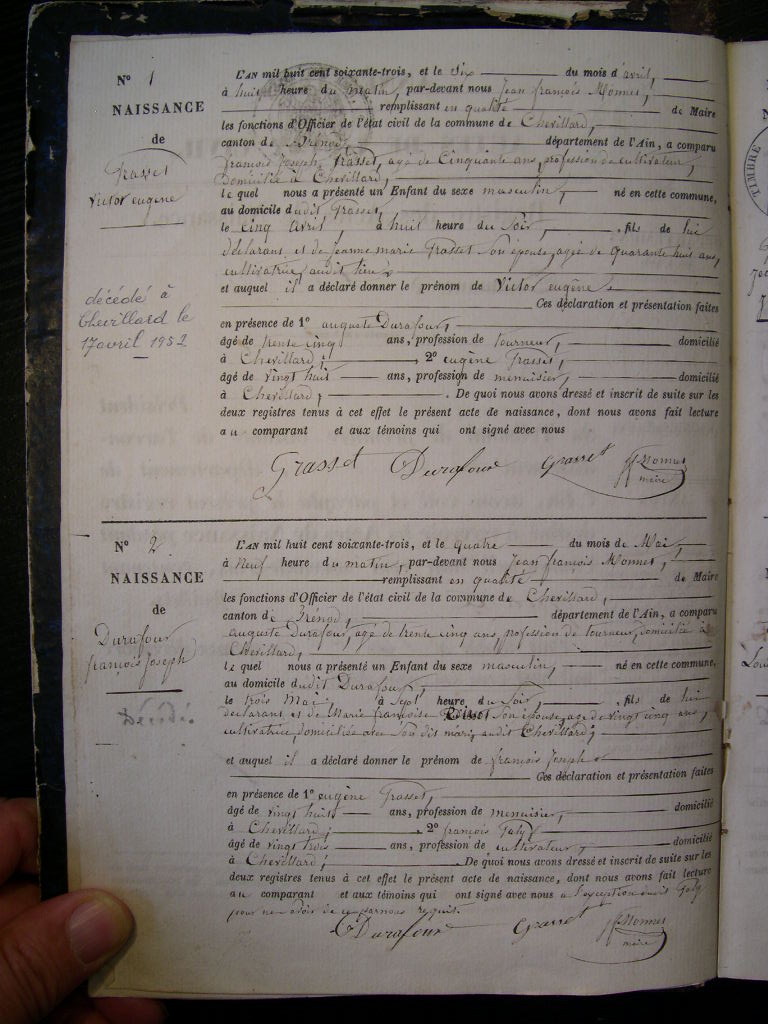 N° 1
NAISSANCE
de
Grasset
Victor eugène
décédé à
Chevillard le
17 avril 1952
L'AN mil huit cent soixante-trois, et le Six du mois d'avril,
à huit heure du matin, par-devant nous Jean françois Monnet,
remplissant en qualité de Maire
les fonctions d'Officier de l'état civil de la commune de Chevillard,
canton de Brénod, département de l'Ain, a comparu
françois Joseph Grasset, agé de Cinquante ans, profession de cultivateur,
Domicilié à Chevillard,
le quel nous a présenté un Enfant du sexe masculin, né en cette commune,
au domicile dudit Grasset,
le cinq avril, à huit heure du Soir, fils de lui
déclarant et de Jeanne marie Grasset son épouse, agée de quarante huit ans,
cultivatrice, audit lieu,
et auquel il a déclaré donner le prénom de Victor eugène
Ces déclaration et présentation faites
en présence de 1° auguste Durafour,
âgé de trente cinq ans, profession de tourneur, domicilié
à Chevillard; 2° eugène Grasset,
âgé de vingt huit ans, profession de menuisier, domicilié
à Chevillard; De quoi nous avons dressé et inscrit de suite sur les
deux registres tenus à cet effet le présent acte de naissance, dont nous avons fait lecture
au comparant et aux témoins qui ont signé avec nous
Grasset Durafour Grasset Monnet
maire
N° 2
NAISSANCE
de
Durafour
françois Joseph
L'AN mil huit cent soixante-trois, et le quatre du mois de Mai,
à Neuf heure du matin, par-devant nous Jean françois Monnet,
remplissant en qualité de Maire
les fonctions d'Officier de l'état civil de la commune de Chevillard,
canton de Brénod, département de l'Ain, a comparu
auguste Durafour, agé de trente cinq ans, profession de tourneur, domicilié à
Chevillard,
le quel nous a présenté un Enfant du sexe masculin, né en cette commune,
au domicile dudit Durafour,
le trois Mai, à Sept heure du Soir, fils de lui
déclarant et de Marie françoise Son épouse, agée de vingt cinq ans,
cultivatrice, domiciliée avec Son dit mari, audit Chevillard;
et auquel il a déclaré donner le prénom de françois Joseph
Ces déclaration et présentation faites
en présence de 1° eugène Grasset,
âgé de vingt huit ans, profession de menuisier, domicilié
à Chevillard; 2° françois Galy
âgé de vingt trois ans, profession de cultivateur, domicilié
à Chevillard; De quoi nous avons dressé et inscrit de suite sur les
deux registres tenus à cet effet le présent acte de naissance, dont nous avons fait lecture
au comparant et aux témoins qui ont signé avec nous a l'exception dudit Galy
pour ne savoir de ce par nous requis.
Durafour Grasset Monnet
maire
TIMBRE